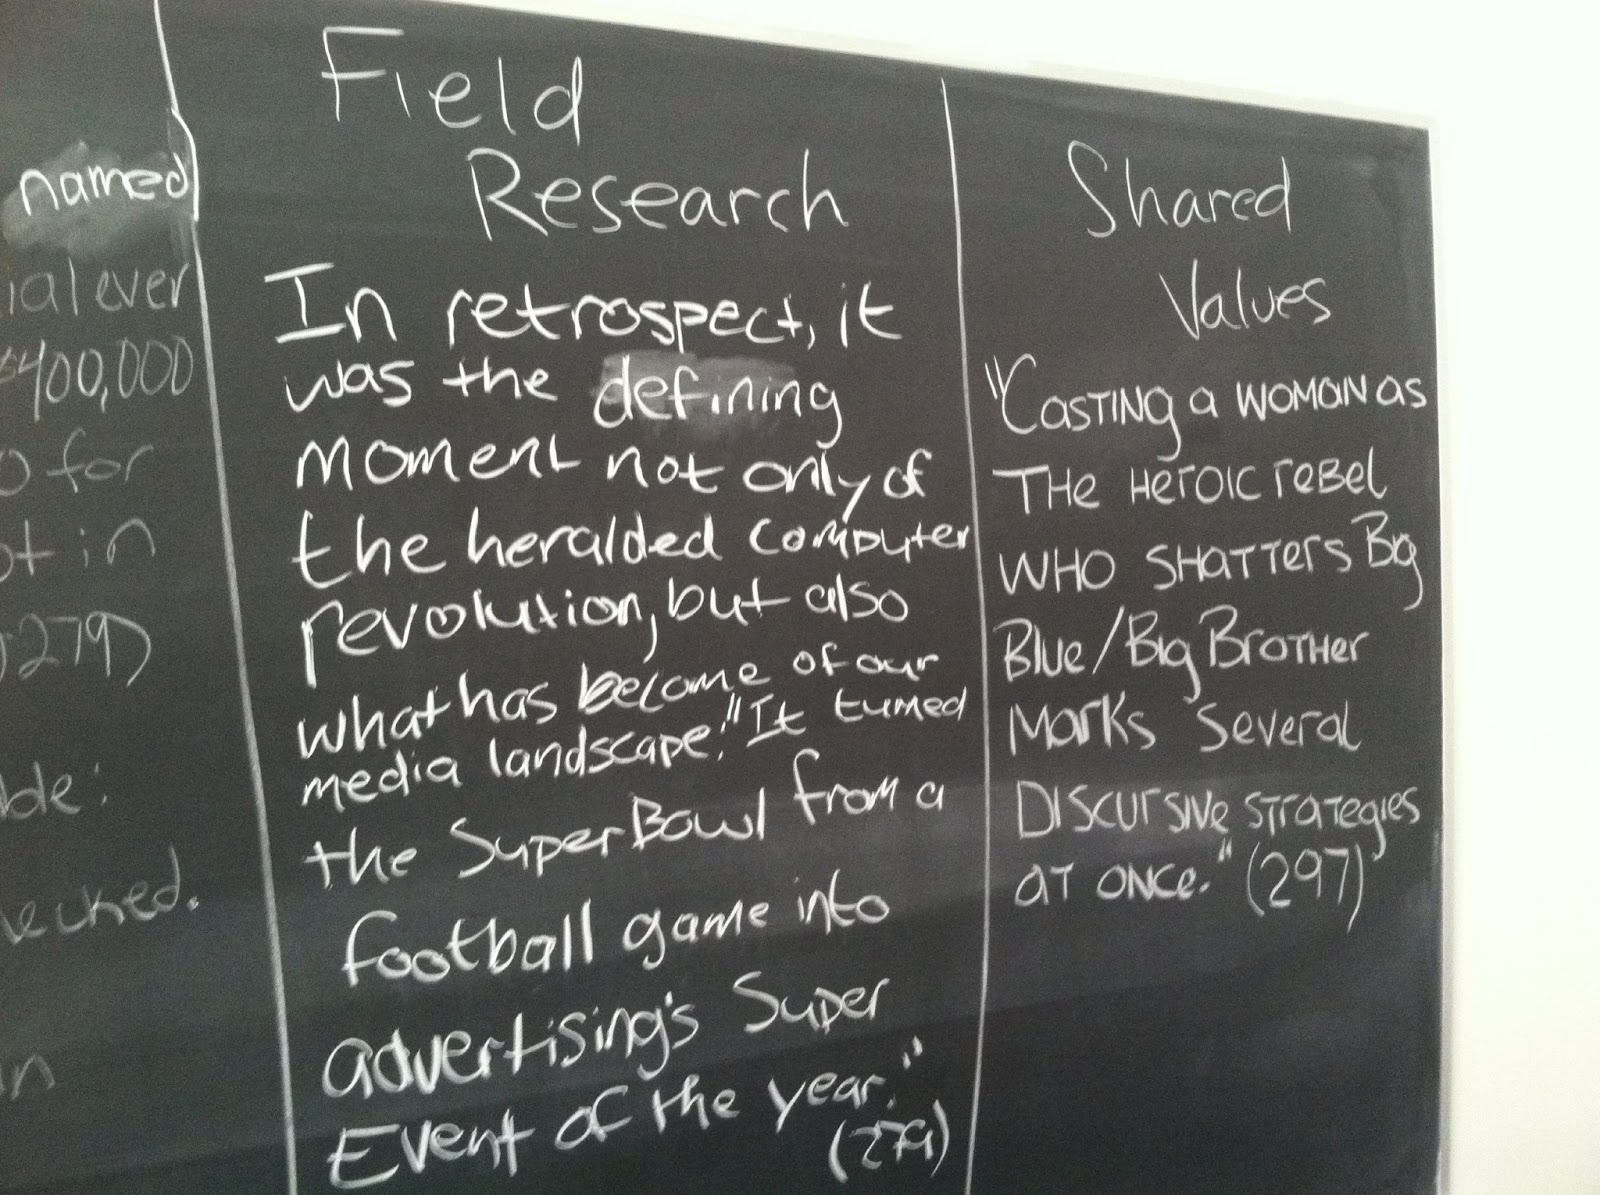 named
ial ever
$400,000
for
in
279)
ecked.
in
Field
Research
In retrospect, it
was the defining
moment not only of
the heralded computer
revolution, but also
what has become of our
media landscape." It turned
the Super Bowl from a
football game into
advertising's Super
Event of the year."
(279)
Shared
Values
"Casting a woman as
THe Heroic rebel
WHO SHATTERS Big
Blue/Big BroTHer
Marks several
Discursive strategies
at once." (297)